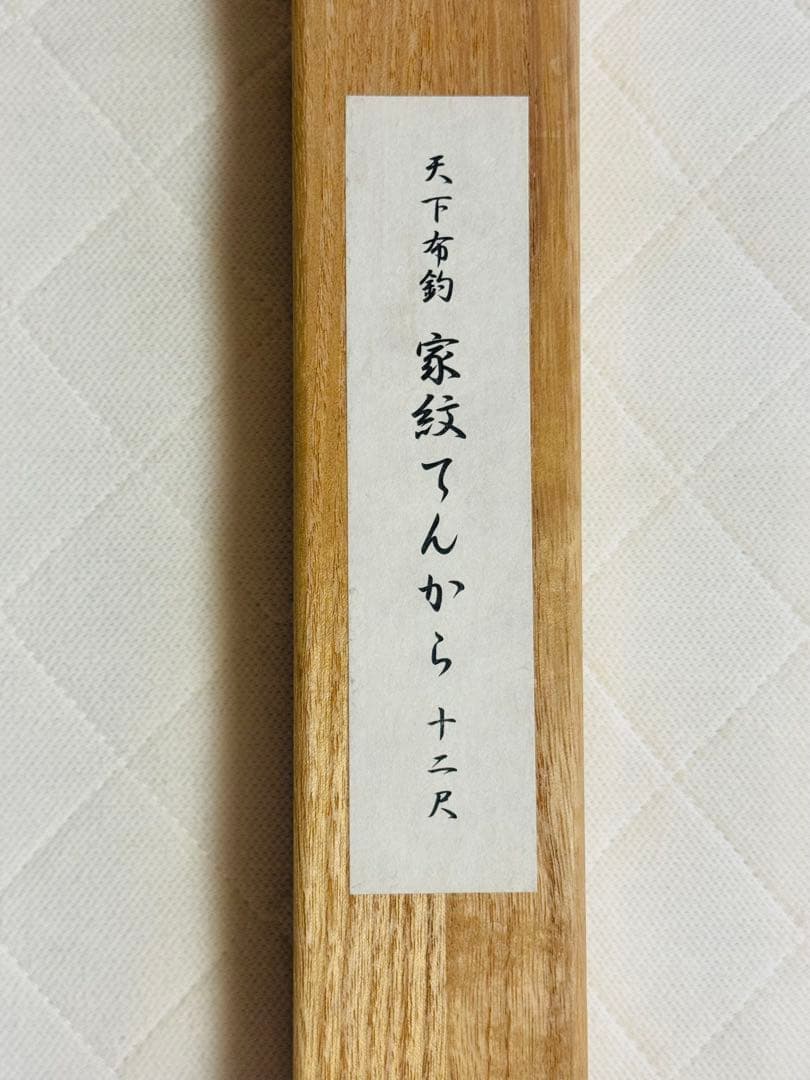 天下布釣 家紋てんから 十二尺